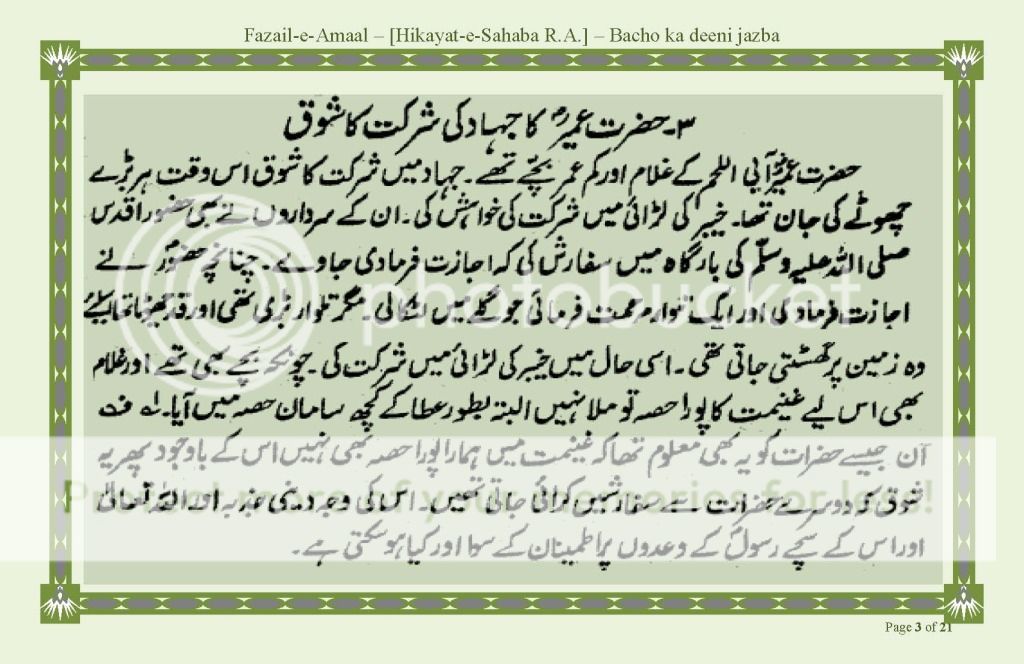 Fazail-e-Amaal – [Hikayat-e-Sahaba R.A.] – Bacho ka deeni jazba
۳۔ حضرت عمیرؓ کا جہاد کی شرکت کا شوق
حضرت عمیرؓ آبی اللحم کے غلام اور کم عمر بچے تھے۔ جہاد میں شرکت کا شوق اس وقت ہر بڑے
چھوٹے کی جان تھا۔ خیبر کی لڑائی میں شرکت کی خواہش کی۔ ان کے سرداروں نے بھی حضور اقدس
صلی اللہ علیہ وسلم کی بارگاہ میں سفارش کی کہ اجازت فرما دی جاوے۔ چنانچہ حضورؐ نے
اجازت فرما دی اور ایک تلوار مرحمت فرمائی جو گلے میں لٹکالی۔ مگر تلوار بڑی تھی اور قد چھوٹا تھا اسلئے
وہ زمین پر گھسٹتی جاتی تھی۔ اسی حال میں خیبر کی لڑائی میں شرکت کی۔ چونکہ بچے بھی تھے اور غلام
بھی اس لیے غنیمت کا پورا حصہ تو ملا نہیں البتہ بطور عطا کے کچھ سامان حصہ میں آیا۔ لہ ف
ان جیسے حضرات کو یہ بھی معلوم تھا کہ غنیمت میں ہمارا پورا حصہ بھی نہیں اس کے باوجود پھر یہ
شوق کہ دوسرے حضرات سے سفارشیں کرائی جاتی تھیں۔ اس کی وجہ دینی جذبہ اور اللہ تعالیٰ
اور اس کے سچے رسولؐ کے وعدوں پر اطمینان کے سوا اور کیا ہو سکتی ہے۔
photobucket
Protect more of your memories for less!
Page 3 of 21